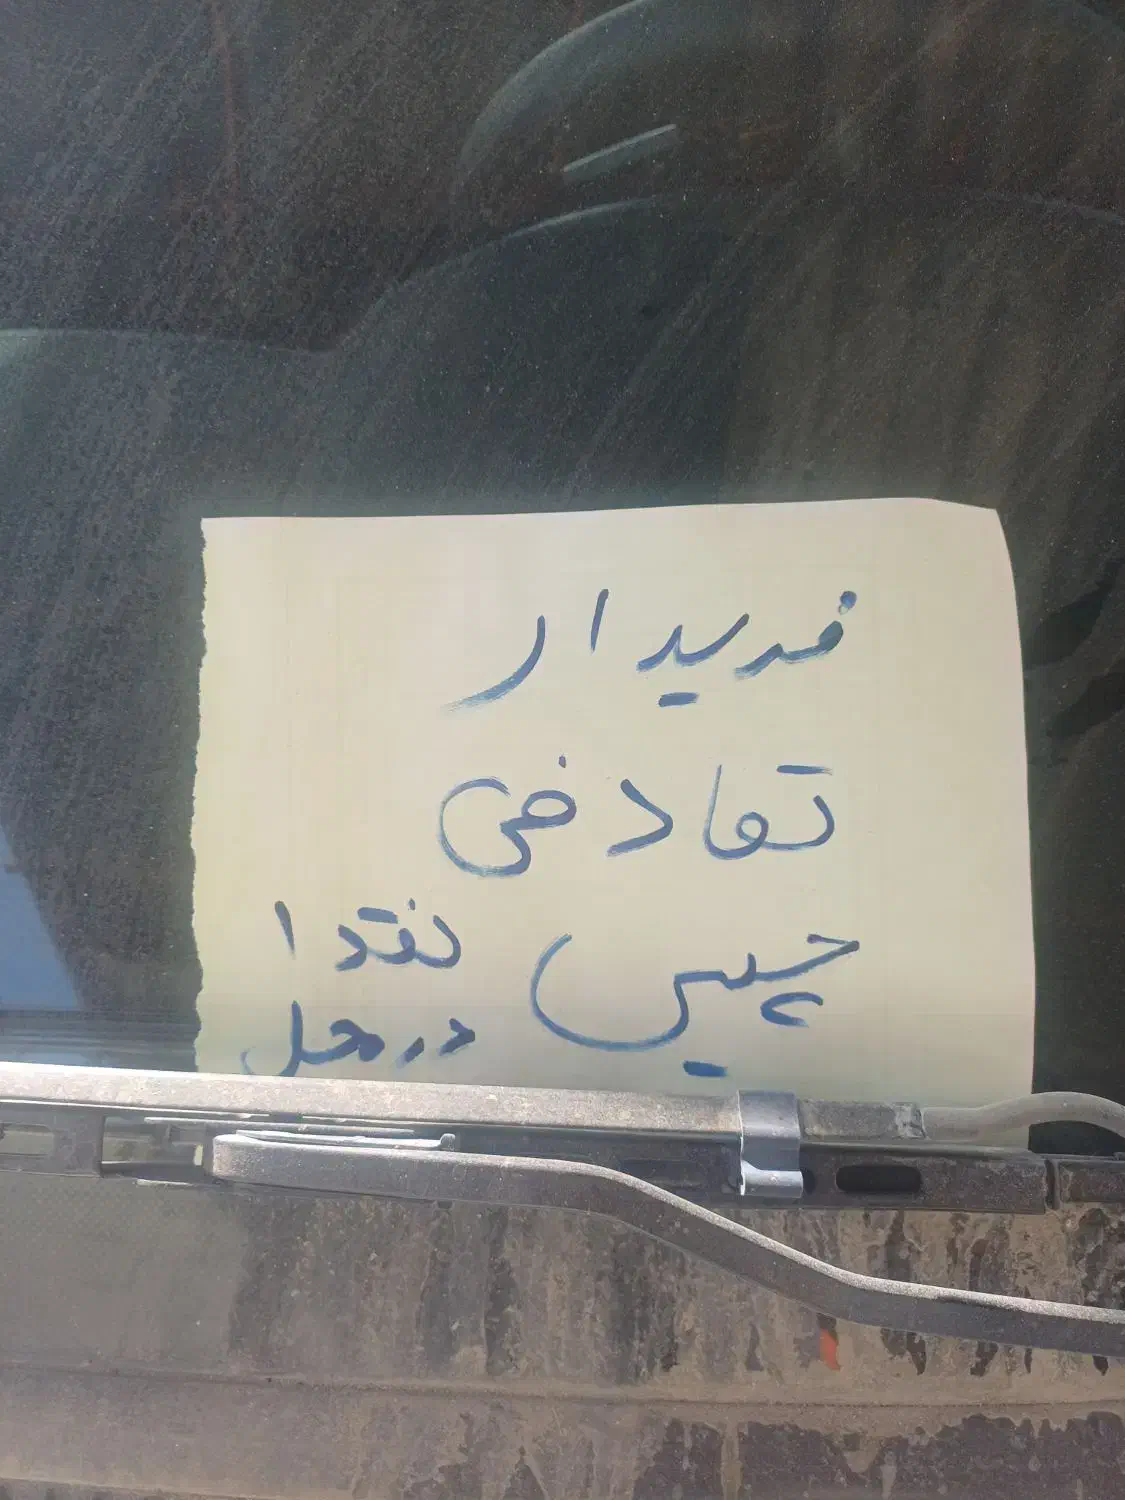 خریدار
تصادفی
چپی نقدا
در محل